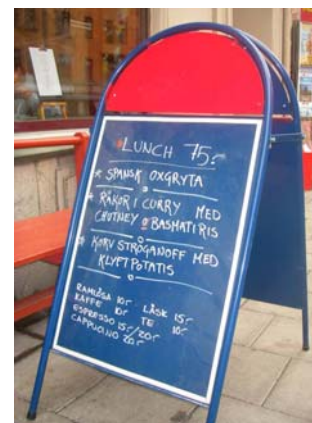 LUNCH 75:-
* SPANSK OXGRYTA
* RÄKOR I CURRY MED
CHUTNEY O BASMATIRIS
* KORV STROGANOFF MED
KLYFTPOTATIS
RAMLÖSA 10:- LÄSK 15:-
KAFFE 10:- TE 10:-
ESPRESSO 15:-/20:-
CAPPUCINO 20:-